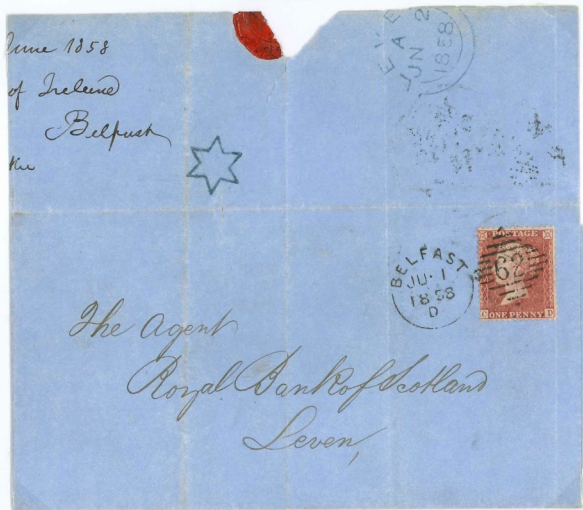 June 1858
of Ireland
Belfast
LEVE
A
JUN 2
1858
BELFAST
JU 1
1858
D
POSTAGE
62
C D
ONE PENNY
The Agent
Royal Bank of Scotland
Leven,